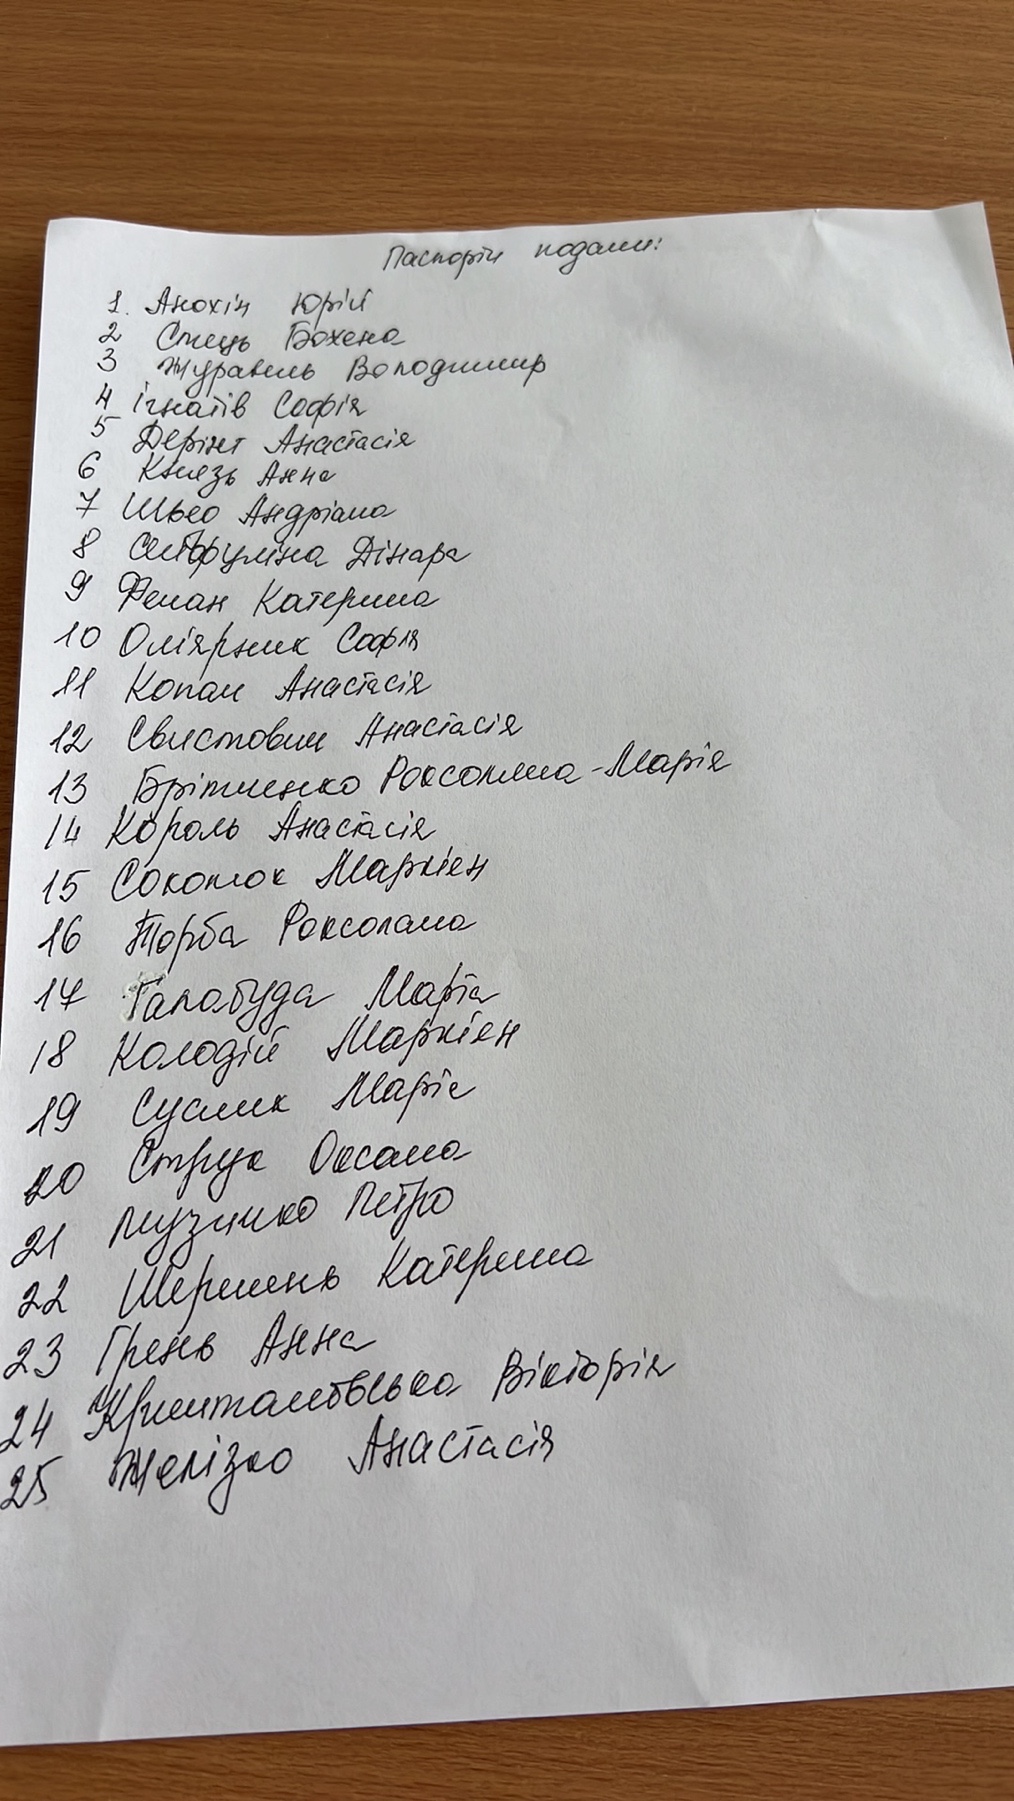 Паспорти подали:
1. Анохін Юрій
2 Стець Божена
3 Журавель Володимир
4 Ігнатів Софія
5 Дерінг Анастасія
6 Князь Анна
7 Швео Андріана
8 Сейфуліна Дінара
9 Фецан Катерина
10 Оліярник Софія
11 Копач Анастасія
12 Свистович Анастасія
13 Брітченко Роксоляна-Марія
14 Король Анастасія
15 Соколюк Маркіян
16 Торба Роксолана
17 Галабуда Марта
18 Колодій Маркіян
19 Суслик Марія
20 Струк Оксана
21 Музичко Петро
22 Шеремень Катерина
23 Грень Анна
24 Кришталовська Вікторія
25 Желізко Анастасія